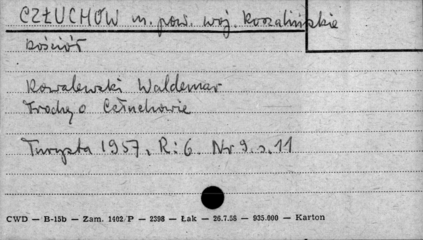 CZŁUCHÓW m. pow. woj. koszalińskie
kościół
Kowalewski Waldemar
Trochę o Człuchowie
Turysta 1957. R: 6. Nr 9. s. 11
CWD — B-15b — Zam. 1402/P — 2398 — Łak — 26.7.56 — 935.000 — Karton